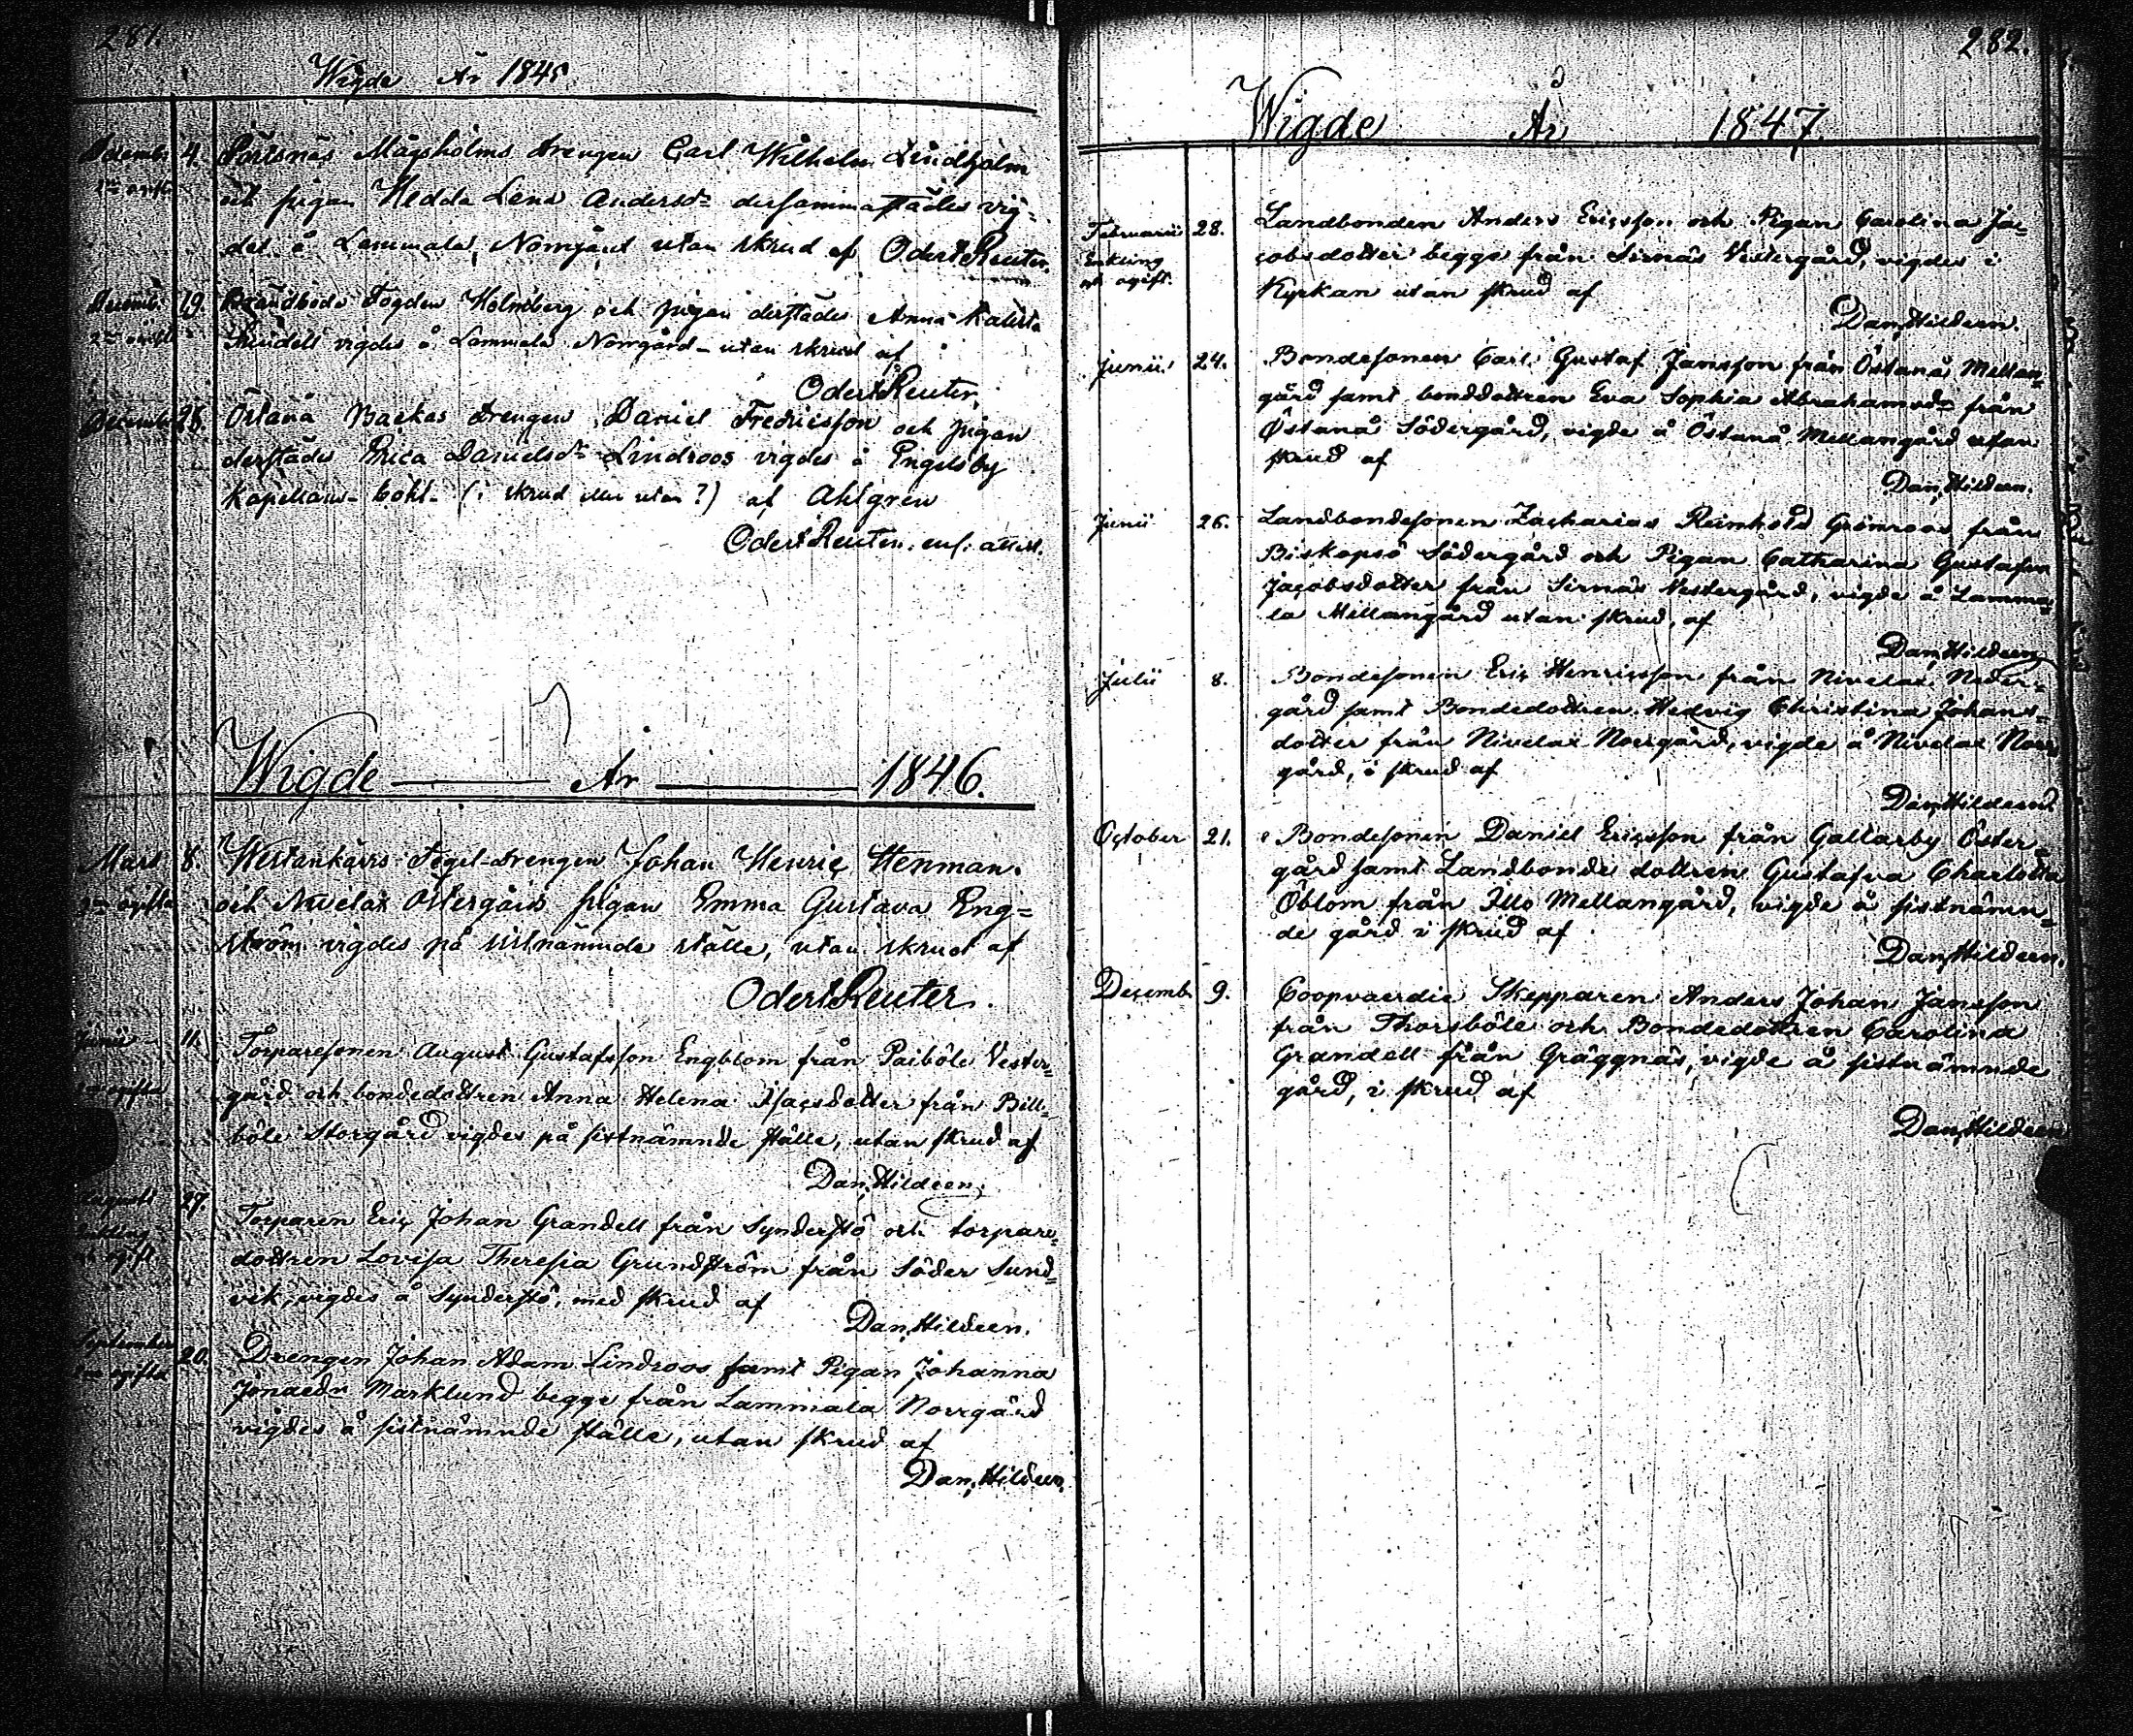 281.
Wigde År 1845.
Decemb: 4. Pärtsnäs Mågsholms drengen Carl Wilhelm Lindholm
2ne ogifta och pigan Hedda Lena Andersdr dersammastädes vig-
des å Lammala, Norrgård utan skrud af OdertReuter.
Decemb. 19. Fogden Holmberg och pigan derstädes Anna
2ne ogifta vigdes å Lammala Norrgård utan skrud af
OdertReuter.
Decemb 28. Östanå Backas drengen Daniel Fredricsson och pigan
derstädes Erica Danielsdr Lindroos vigdes å Engelsby
Kapellans-bohl- (i skrud eller utan?) af Ahlgren
OdertReuter. enl. attest.
Wigde År 1846.
Mars 8. Westankärrs Tegel-drengen Johan Henric Stenman
2ne ogifta och Nivelax Östergårds pigan Emma Gustava Eng=
ström vigdes på sistnämnde ställe, utan skrud af
OdertReuter.
Junii 11. Torparesonen August Gustafsson Engblom från Paiböle Vester=
2ne ogifta gård och bondedottren Anna Helena Isacsdotter från Bill=
böle Storgård vigdes på sistnämnde ställe, utan skrud af
Dan, Hildeen.
Augusti 27. Torparen Eric Johan Grandell från Syndersstö och torpare=
Enkling dottren Lovisa Theresia Grundström från Söder Sund=
och ogift vik, vigdes å Syndersstö, med skrud af
Dan, Hildeen.
September 20. Drengen Johan Adam Lindroos samt Pigan Johanna
2ne ogifta Jonaedr Marklund begge från Lammala Norrgård
vigdes å sistnämnde ställe, utan skrud af
Dan, Hildeen.
282.
Wigde År 1847.
Februarii 28. Landbonden Anders Ericsson och Pigan Carolina Ja=
Enkling cobsdotter begge från Sirnäs Vestergård, vigdes i
och ogift. Kyrkan utan skrud af
Dan, Hildeen.
Junii 24. Bondesonen Carl Gustaf Jansson från Östanå Mellan=
gård samt bonddottren Eva Sophia Abrahamsdr från
Östanå Södergård, vigde å Östanå Mellangård utan
skrud af
Dan, Hildeen.
Junii 26. Landbondesonen Zacharias Reinhold Grönroos från
Biskopsö Södergård och Pigan Catharina Gustafva
Jacobsdotter från Sirnäs Vestergård, vigde å Lamma=
la Mellangård utan skrud, af
Dan, Hildeen
Julii 8. Bondesonen Eric Henricsson från Nivelax Neder=
gård samt Bondedottren Hedvig Christina Johans=
dotter från Nivelax Norrgård, vigde å Nivelax Norr
gård, i skrud af
Dan, Hildeen
October 21. Bondesonen Daniel Ericsson från Gallarby Öster=
gård samt Landbonde dottren Gustafva Charlotta
Öblom från Illo Mellangård, vigde å sistnämn=
de gård i skrud af
Dan, Hildeen.
Decemb. 9. Coopvaerdie Skepparen Anders Johan Jansson
från Thorsböle och Bondedottren Carolina
Grandell från Gräggnäs, vigde å sistnämnde
gård, i skrud af
Dan, Hildeen